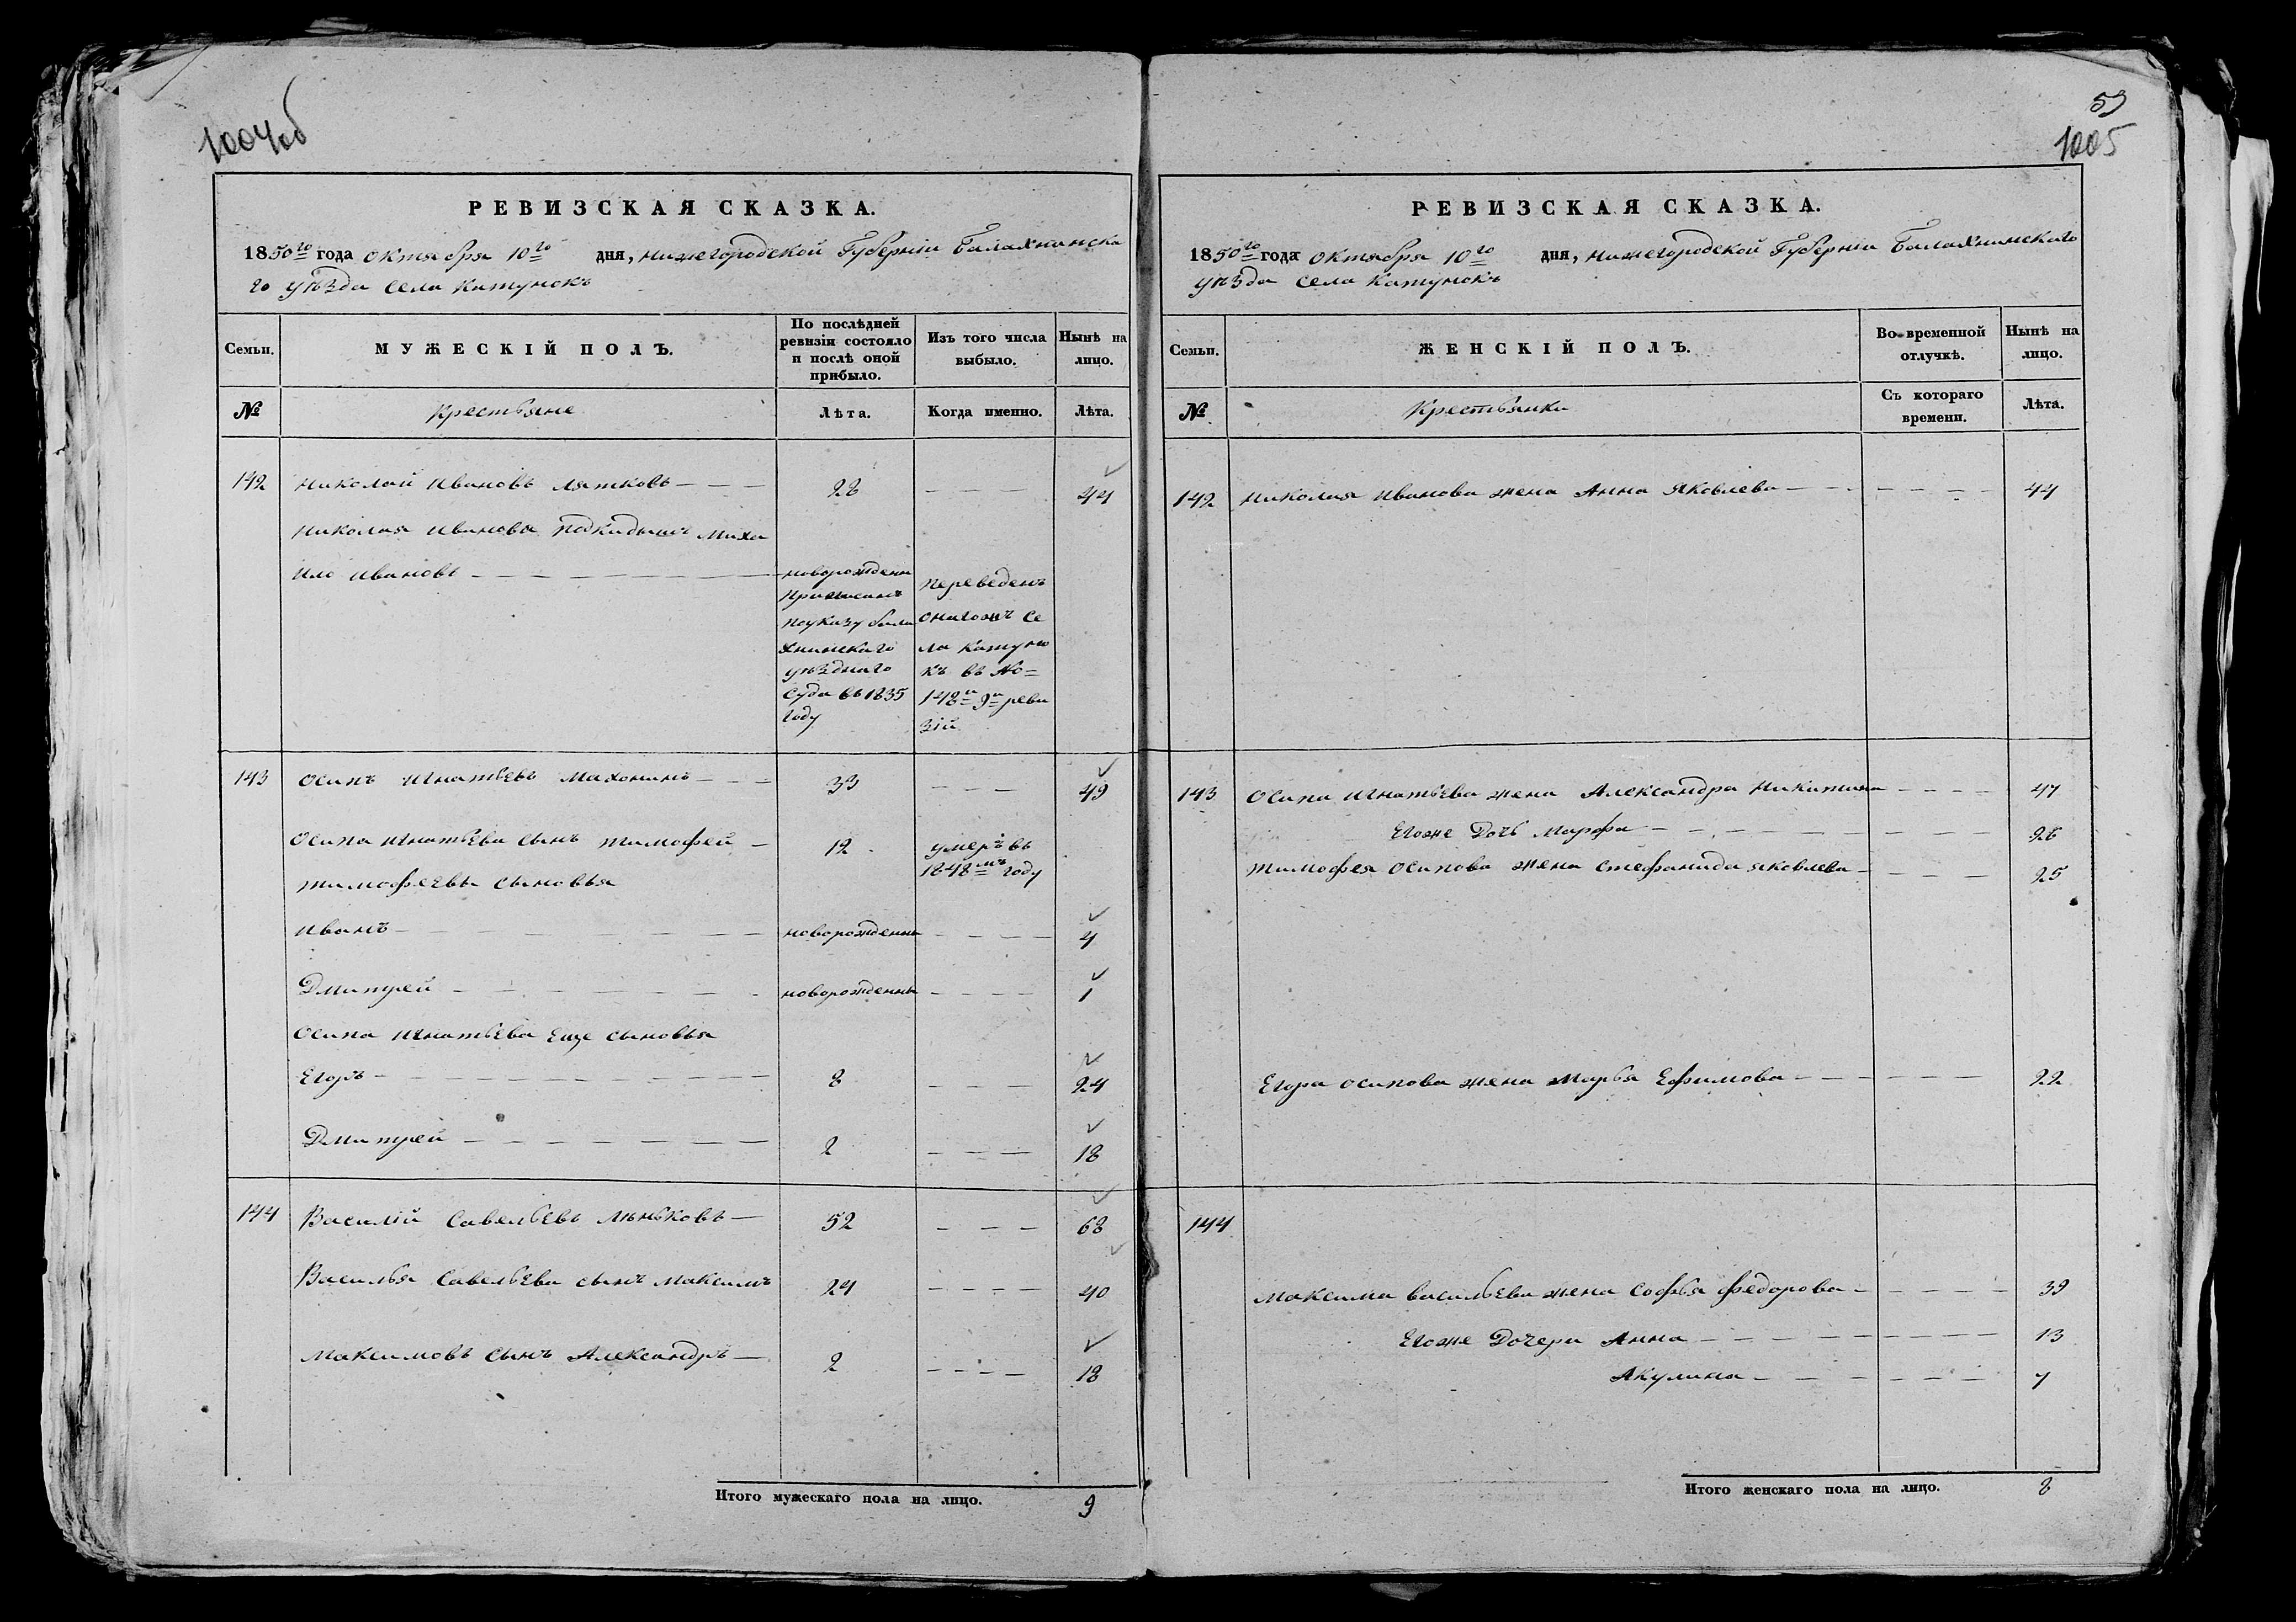 1004об
РЕВИЗСКАЯ СКАЗКА.
1850го года октября 10го дня, Нижегородской Губерніи Балахнинска
го уѣзда села Катунокъ
Семьи.
МУЖЕСКІЙ ПОЛЪ.
По послѣдней
ревизіи состояло
и послѣ оной
прибыло.
Изъ того числа
выбыло.
Нынѣ на
лицо.
№
Крестьяне
Лѣта.
Когда именно.
Лѣта.
142 Николай Ивановъ Лятковъ 28 44
Николая Иванова подкидышъ Миха
ило Ивановъ
новорожденн
приписанъ
поуказу бала
хнинскаго
уѣзднаго
суда въ 1835
году
переведенъ
онагожъ се
ла Катуно
къ въ №
148й 9й реви
зіи
143 Осипъ Игнатьевъ Махонинъ 33 49
Осипа Игнатьева сынъ Тимофей 12 умеръ въ
1848мъ году
Тимофеевы сыновья
Иванъ новорожденны 4
Дмитрей новорожденны 1
Осипа Игнатьева еще сыновья
Егоръ 8 24
Дмитрей 2 18
144 Василій Савельевъ Лѣньковъ 52 68
Василья Савельева сынъ Максимъ 24 40
Максимовъ сынъ Александръ 2 18
Итого мужескаго пола на лицо. 9
59
1005
РЕВИЗСКАЯ СКАЗКА.
1850го года октября 10го дня, Нижегородской Губерніи Балахнинскаго
уѣзда села Катунокъ
Семьи.
ЖЕНСКІЙ ПОЛЪ.
Во временной
отлучкѣ.
Нынѣ на
лицо.
№
Крестьянки
Съ котораго
времени.
Лѣта.
142 Николая Иванова жена Анна Яковлева 44
143 Осипа Игнатьева жена Александра Никитина 47
Егоже Дочь Марфа 28
Тимофея Осипова жена Стефанида Яковлева 25
Егора Осипова жена Марья Ефимова 22
144
Максима Васильева жена Софья Федорова 39
Егоже Дочери Анна 13
Акулина 7
Итого женскаго пола на лицо. 8